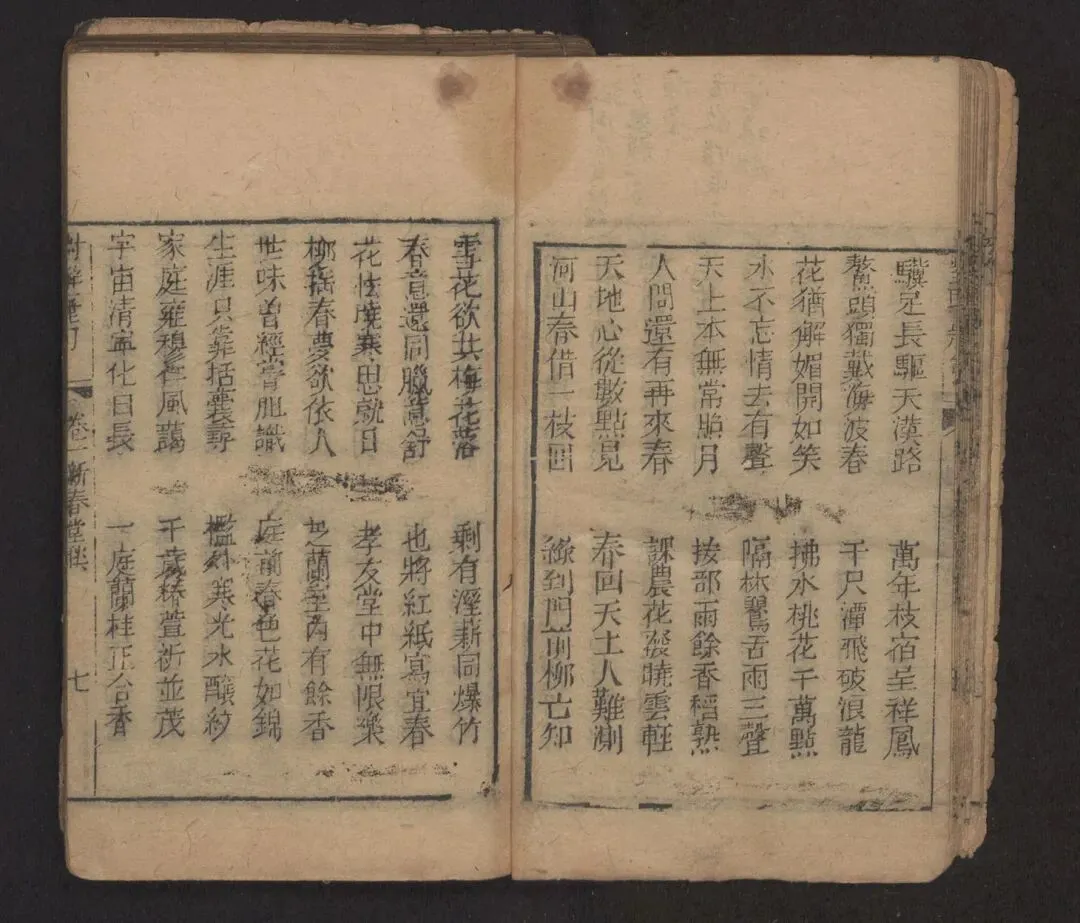 驥足長驅天漢路
萬年枝宿呈祥鳳
鰲頭獨戴海波春
千尺潭飛破浪龍
花猶解媚開如笑
拂水桃花千萬點
水不忘情去有聲
隔林鸎舌雨三聲
天上本無常照月
按部雨餘香稻熟
人間還有再來春
課農花發曉雲輕
天地心從數點見
春回天上人難測
河山春借一枝回
綠到門前柳亡知
雪花欲共梅花落
剩有溼薪同爆竹
春意還同臘意舒
也將紅紙寫宜春
花怯曉寒思就日
孝友堂中無限樂
柳搖春夢欲依人
芝蘭室內有餘香
世味曾經嘗胆識
庭前春色花如錦
生涯只靠括囊尋
檻外寒光水釀紗
家庭雍穆仁風藹
千歲椿萱祈並茂
宇宙清寧化日長
一庭蘭桂正合香
卷一 新春堂聯
七